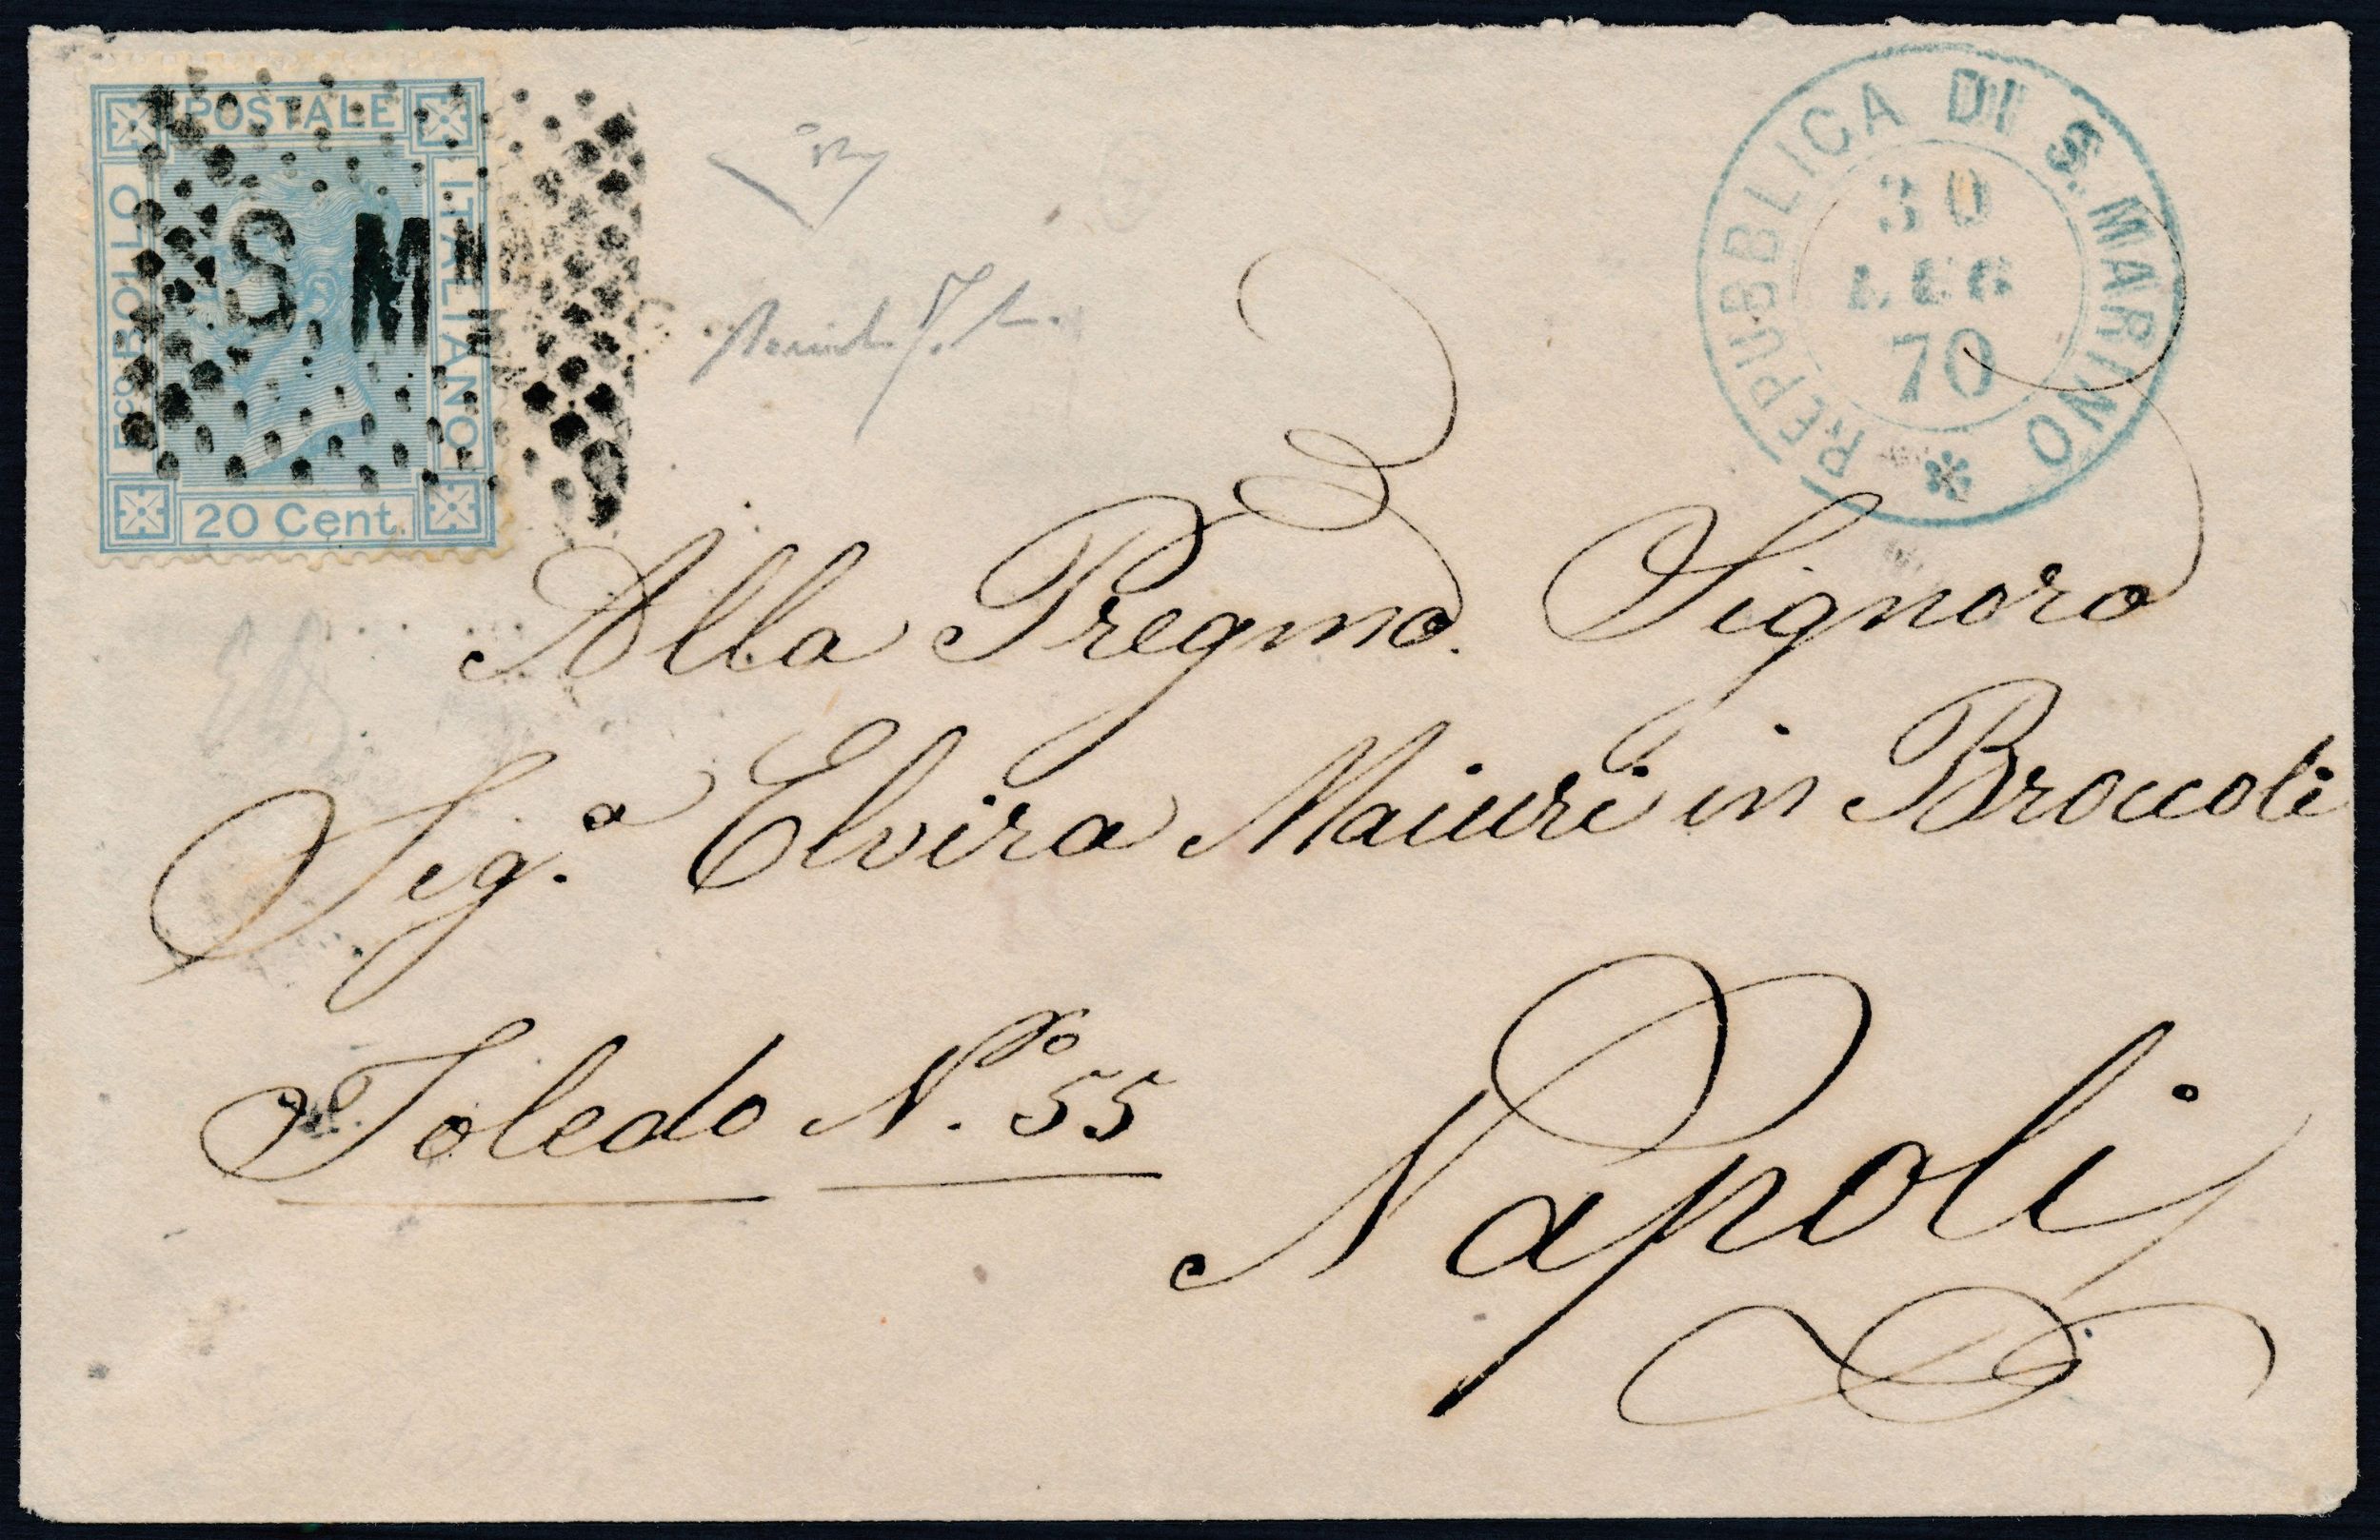 POSTALE
Fco BOLLO
ITALIANO
20 Cent.
S M
REPUBBLICA DI S. MARINO
30
LUG
70
Alla Pregma. Signora
Sig.a Elvira Maiuri in Broccoli
Toledo No. 55
Napoli